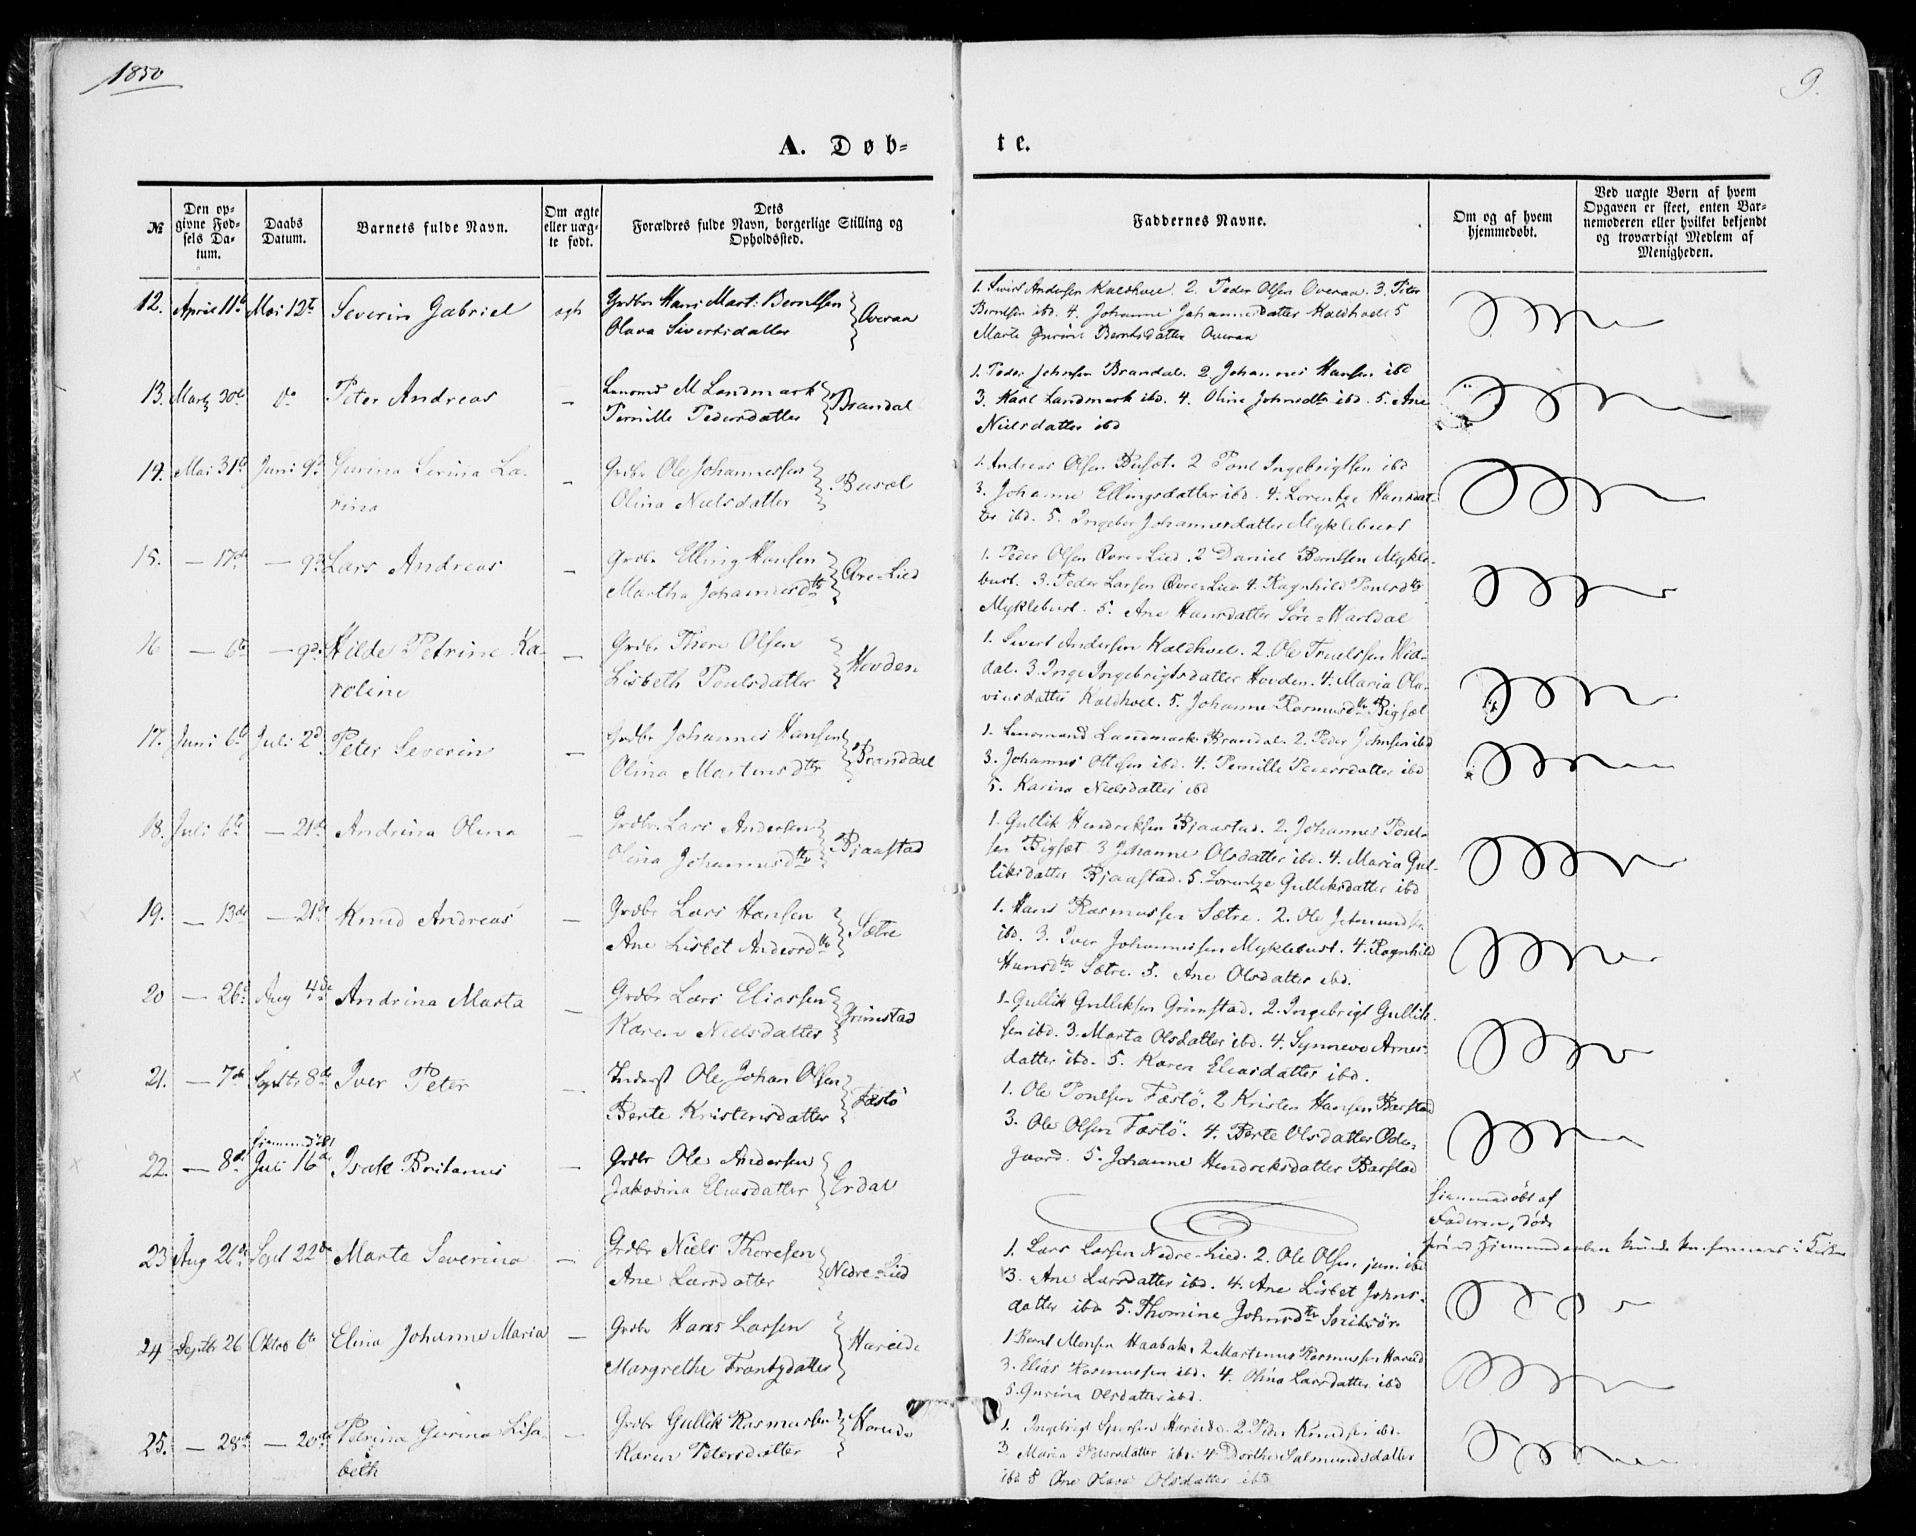 1850
9.
A. Døb-
te.
№
Den opgivne Fødsels Datum.
Daabs Datum.
Barnets fulde Navn.
Om ægte eller uægte født.
Dets Forældres fulde Navn, borgerlige Stilling og Opholdssted.
Faddernes Navne.
Om og af hvem hjemmedøbt.
Ved uægte Børn af hvem Opgaven er skeet, enten Barnemoderen eller hvilket bekjendt og troværdigt Medlem af Menigheden.
12. April 11te Mai 12te Severin Gabriel ægte Grdbr Hans Mart: Berntsen
Olava Sivertsdatter Overaa
1. Sivert Andersen Kaldhoel. 2. Peder Olsen Overaa. 3. Peter
Berntsen ibd. 4. Johanne Johannesdatter Kaldhoel 5
Marte Gurine Berntsdatter Overaa
13. Marts 30te do Peter Andreas — Lensmd M Landmark
Pernille Pedersdatter Brandal
1. Peder Johnsen Brandal. 2. Johannes Hansen ibd
3. Karl Landmark ibd. 4. Oline Johnsdtr ibd. 5. Ane
Nielsdatter ibd
14. Mai 31te Juni 9de Gurina Serina La-
rina — Grdbr Ole Johannessen
Olina Nielsdatter Busæt
1. Andreas Olsen Busæt. 2 Poul Ingebrigtsen ibd
3. Johanne Ellingsdatter ibd. 4. Lorentze Hansdat-
ter ibd. 5. Ingeber Johannesdatter Myklebust
15. — 17de — 9de Lars Andreas — Grdbr Elling Hansen
Martha Johannesdtr Øvre-Lied
1. Peder Olsen Øvre-Lied. 2 Daniel Berntsen Mykle-
bust. 3. Peder Larsen Øvre-Lied 4. Ragnhild Poulsdtr
Myklebust. 5. Ane Hansdatter Søre-Hartdal
16 — 6te — 9de Hilde Petrine Ka-
roline — Grdbr Thore Olsen
Lisbeth Poulsdatter Hovden
1. Sivert Andersen Kaldhoel. 2. Ole Truelssen Vid-
dal. 3. Inge Ingebrigtsdatter Hovden. 4. Maria Ola-
vinsdatter Kaldhoel. 5. Johanne Rasmusdtr Bigsæt
17. Juni 6te Juli 2d Peter Severin — Grdbr Johannes Hansen
Olina Martensdtr Branddal
1. Lensmand Landmark Brandal. 2. Peder Johnsen ibd
3. Johannes Ottesen ibd. 4. Pernille Pedersdatter ibd
5. Karina Nielsdatter ibd
18. Juli 6te — 21de Andrina Olina — Grdbr Lars Andersen
Olina Johannesdtr Bjaastad
1. Gullik Hendriksen Bjaastad. 2. Johannes Poul-
sen Bigsæt. 3 Johanne Olsdatter ibd. 4. Maria Gul-
liksdatter Bjaastad. 5. Lorentze Gulliksdatter ibd
19. — 13de — 21de Knud Andreas — Grdbr Lars Hansen
Ane Lisbet Andersdtr Sætre
1. Hans Rasmussen Sætre. 2. Ole Jetmundsen
ibd. 3. Iver Johannessen Myklebust. 4. Ragnhild
Hansdtr Sætre. 5. Ane Olsdatter ibd.
20 — 26de Aug 4de Andrina Marta — Grdbr Lars Eliassen
Karen Nielsdatter Grimstad
1. Gullik Gulliksen Grimstad. 2. Ingebrigt Gullik-
sen ibd. 3. Marta Olsdatter ibd. 4. Synneve Arnes-
datter ibd. 5. Karen Eliasdatter ibd.
21. — 7de Septbr 8de Iver Peter — Inderst Ole Johan Olsen
Berte Kristensdatter Fæstö
1. Ole Poulsen Fæstö. 2 Kristen Hansen Barstad
3. Ole Olsen Fæstö. 4. Berte Olsdatter Ode-
gaard. 5. Johanne Hendriksdatter Barstad
22. — 8de hjemmedøbt
Juli 16de Isak Britanus — Grdbr Ole Andersen
Jakobina Eliasdatter Erdal
hjemmedöbt af
Faderen, døde
förend Hjemmedaaben kunde konfirmeres i Kirken
23 Aug 26de Sept 22de Marta Severina — Grdbr Niels Thoresen
Ane Larsdatter Nedre-Lied
1. Lars Larsen Nedre-Lied. 2. Ole Olsen jun. ibd
3. Ane Larsdatter ibd. 4. Ane Lisbet Johns-
datter ibd 5. Thomine Johnsdtr
24 Septbr 26 Oktob 6te Elina Johanne Maria — Grdbr Hans Larsen
Margrethe Frantzdatter Hareide
1 Bernt Monsen Haabak. 2 Martinus Rasmussen Hareid
3. Elias Rasmussen ibd. 4. Olina Larsdatter ibd
5. Gurina Olsdatter ibd.
25. — 28de — 20de Petrina Gurina Elisa-
beth — Grdbr Gullik Rasmussen
Karen Petersdatter Hareide
1. Ingebrigt Hareide. 2 Peder Knudsen ibd.
3. Maria Petersdatter ibd. 4 Dorthe Salmundsdatter
ibd 5 Ane Olava Olsdatter ibd